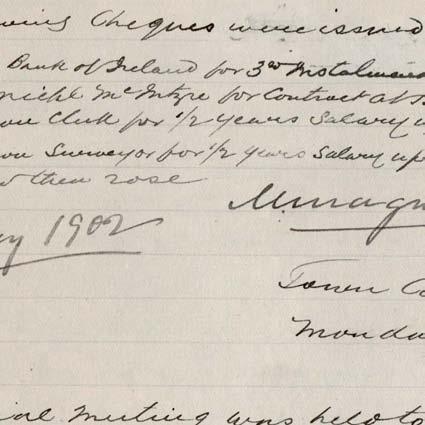 owing Cheques were issued
Bank of Ireland for 3rd Instalment
for Contract at
Clerk for 1/2 years salary u
Surveyor for 1/2 years salary up
then rose
y 1902
Town
Monda
Meeting was held to